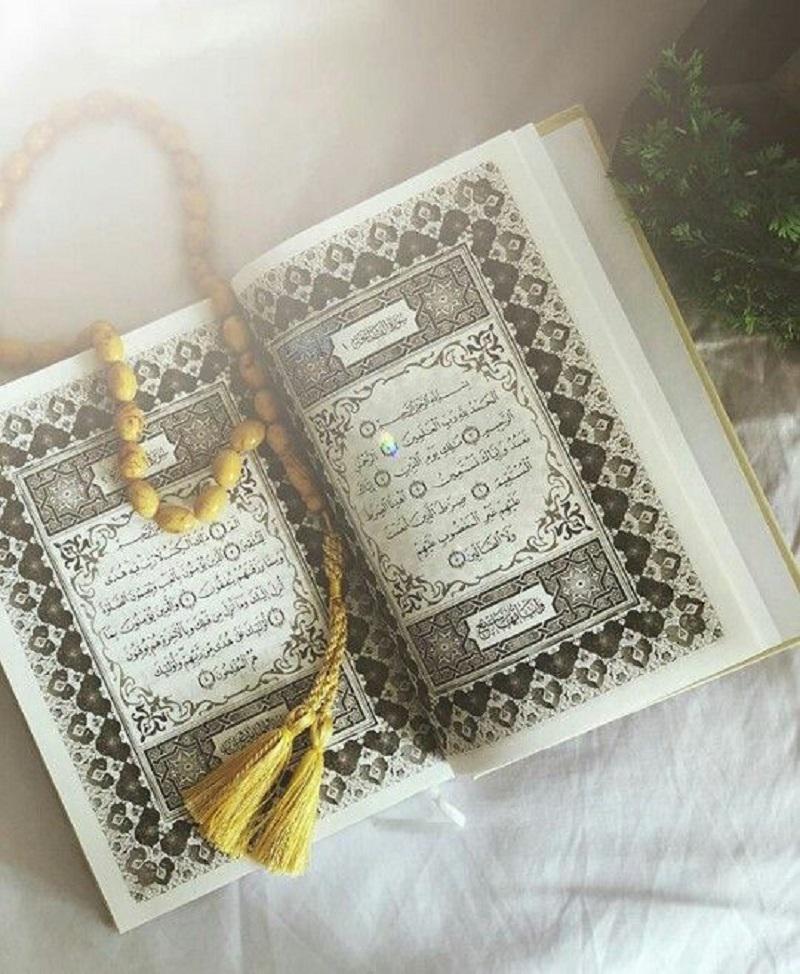 سورة الفاتحة ١
بسم الله الرحمن الرحيم ١
الحمد لله رب العلمين ٢ الرحمن
الرحيم ٣ ملك يوم الدين ٤ إياك
نعبد وإياك نستعين ٥ اهدنا الصراط
المستقيم ٦ صراط الذين أنعمت
عليهم غير المغضوب عليهم
ولا الضالين ٧
سورة
الم ١ ذلك الكتب لا ريب فيه هدى
للمتقين ٢ الذين يؤمنون بالغيب ويقيمون الصلوة
ومما رزقنهم ينفقون ٣ والذين يؤمنون بما
أنزل إليك وما أنزل من قبلك وبالآخرة هم يوقنون ٤
أولئك على هدى من ربهم وأولئك
هم المفلحون ٥